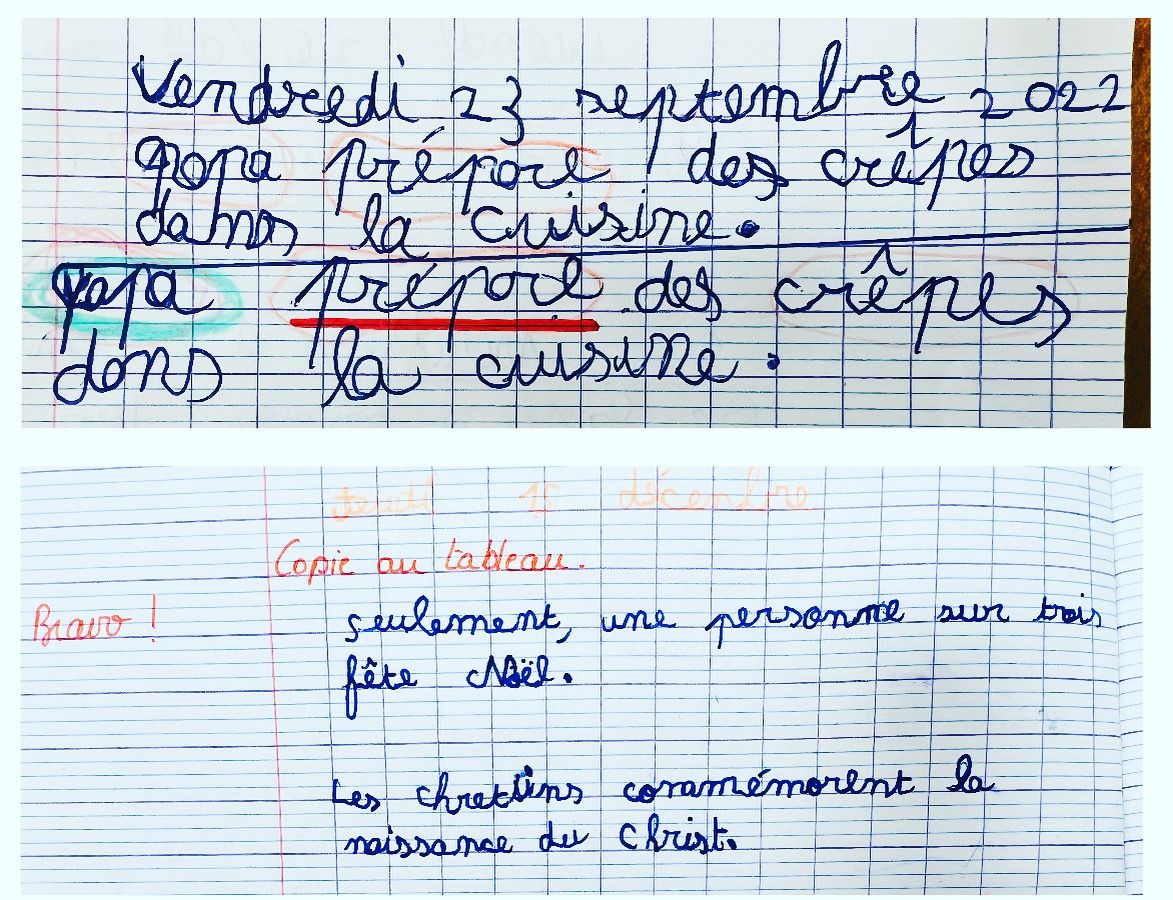 Vendredi 23 septembre 2022
papa prépore des crêpes
dans la cuisine.
papa prépore des crêpes
dons la cuisine.
Jeudi 15 décembre
Copie au tableau.
Bravo !
seulement, une personne sur trois
fête Noël.
Les chretiens commémorent la
naissance du Christ.